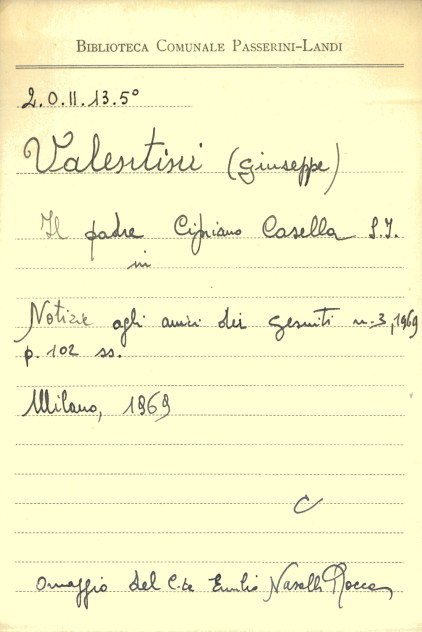 BIBLIOTECA COMUNALE PASSERINI-LANDI
2.O.II.13.5°
Valentini (Giuseppe)
Il padre Cipriano Casella S.I.
in
Notizie agli amici dei gesuiti n. 3, 1969
p. 102 ss.
Milano, 1969
C
Omaggio del C.te Emilio Nasalli Rocca